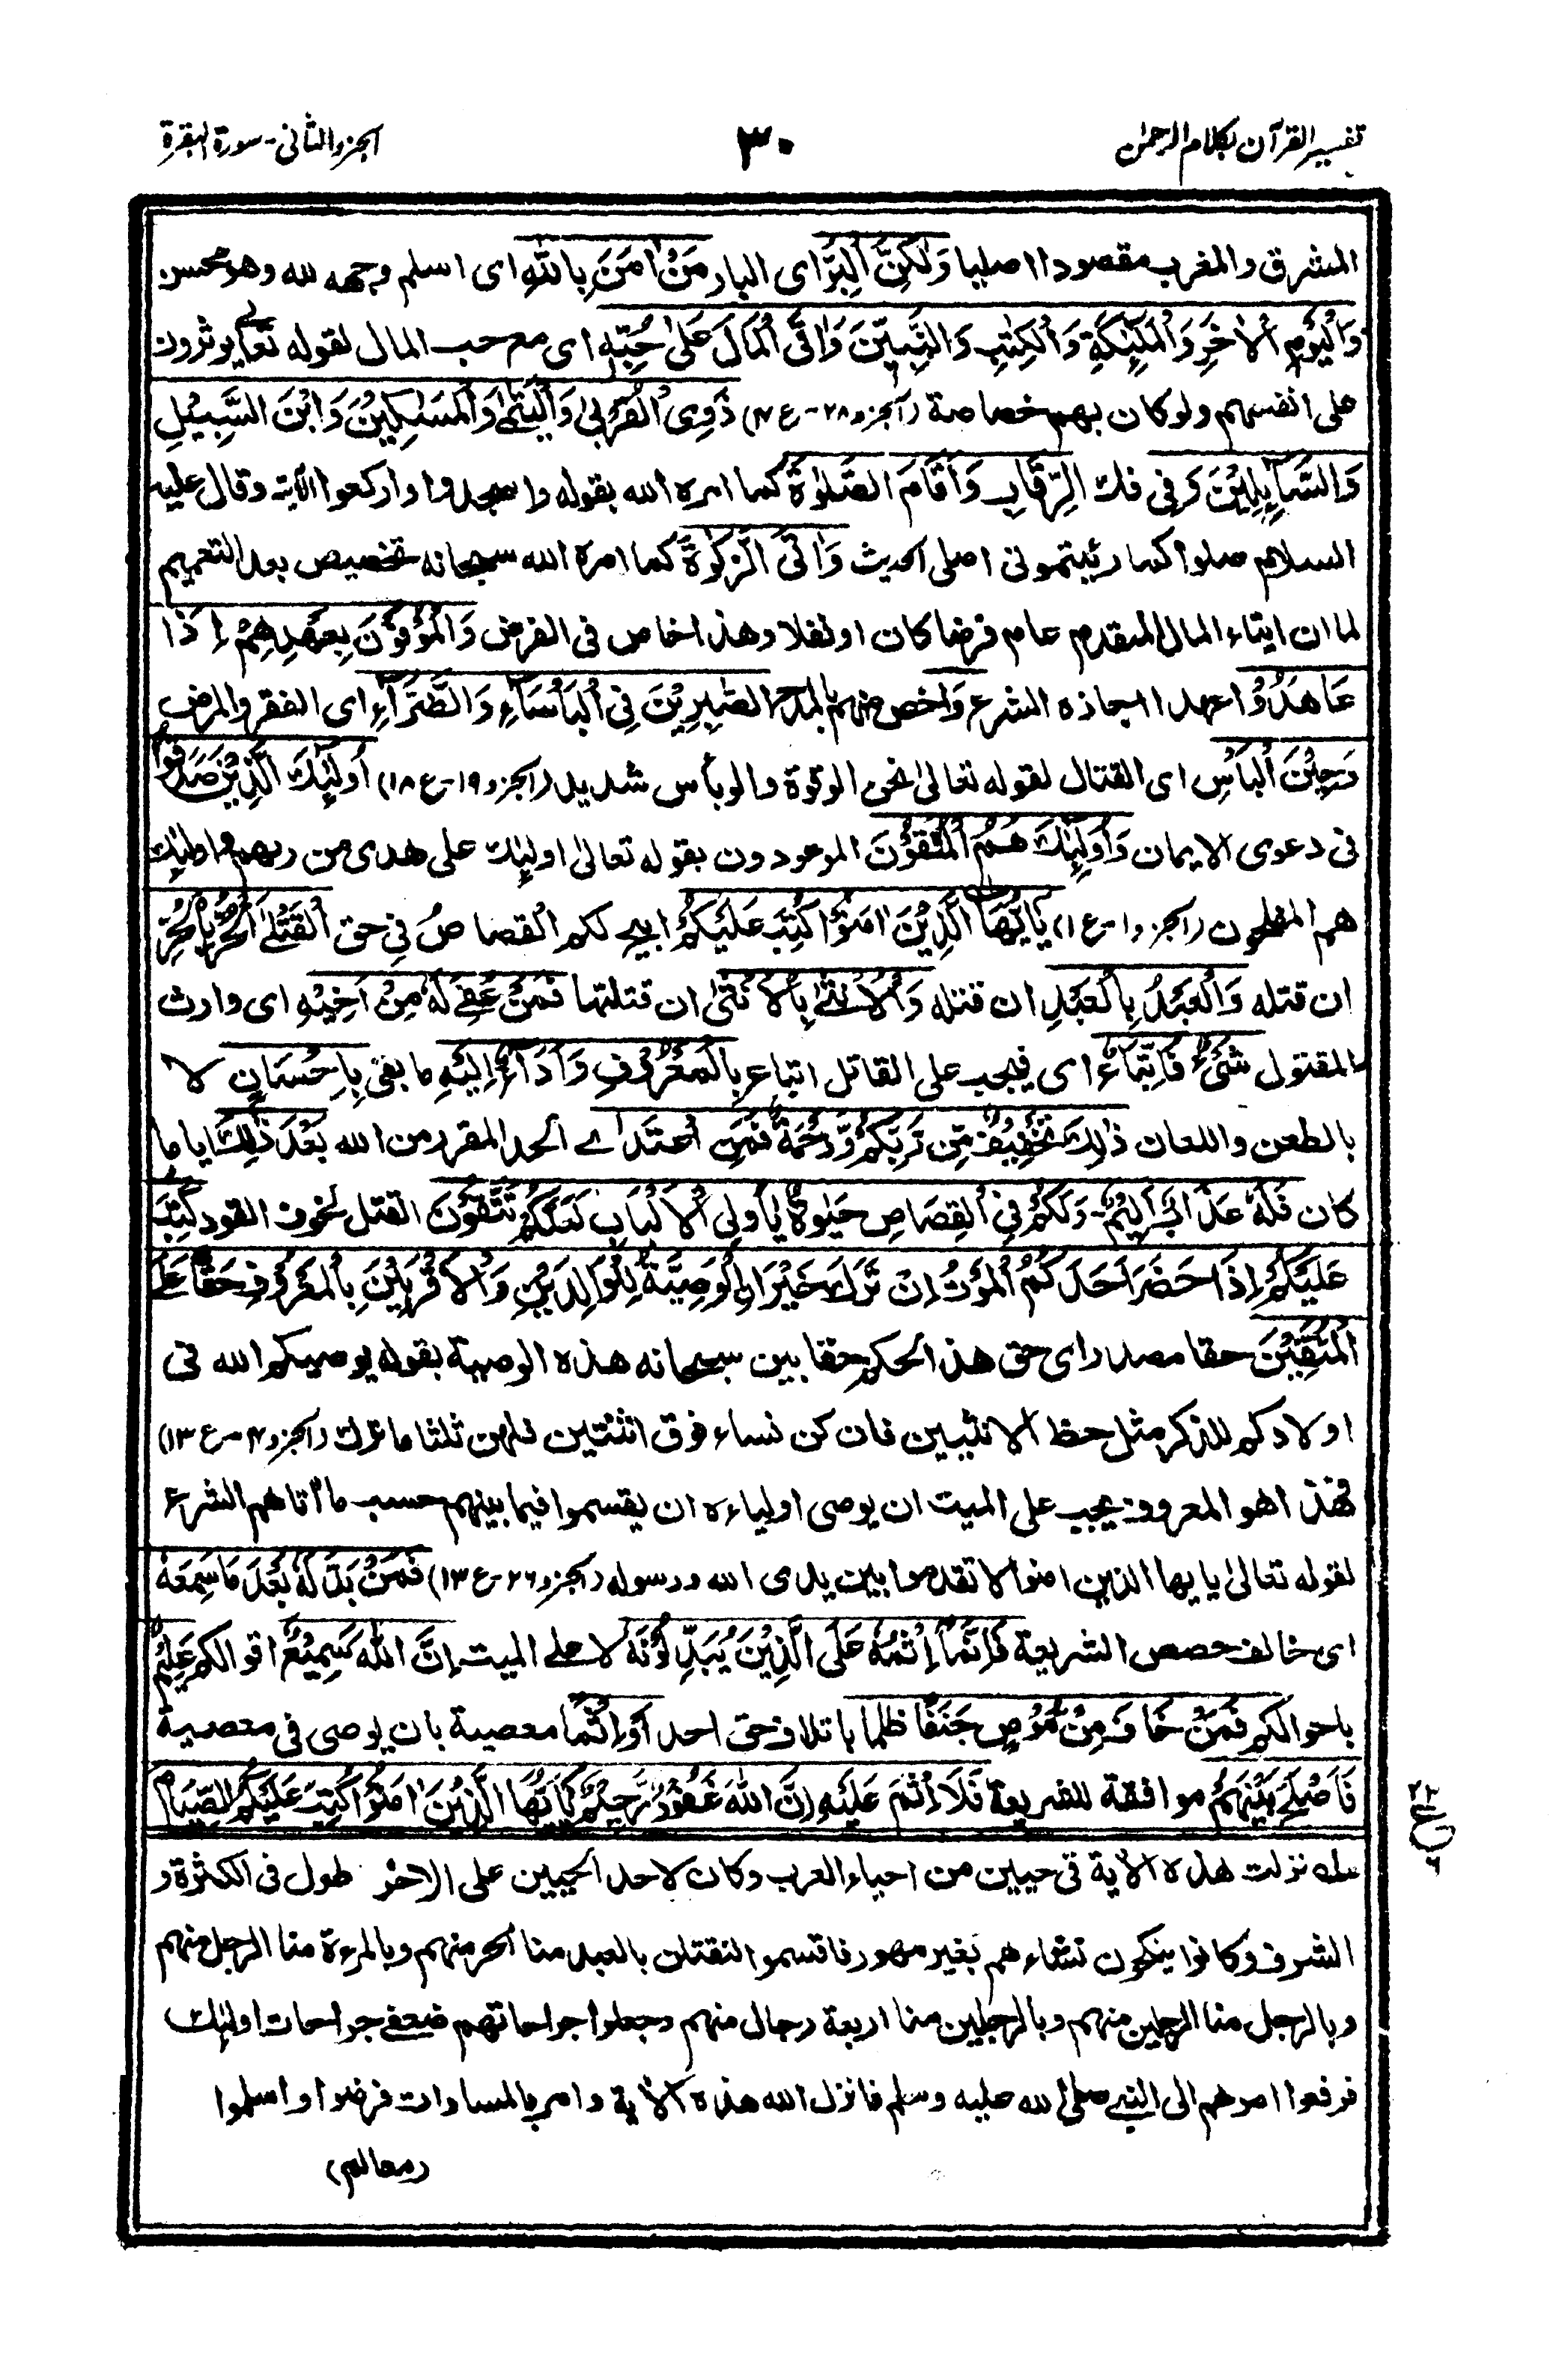 تفسير القرآن بكلام الرحمان ٣٠ الجزء الثانى - سورة البقرة
المشرق والمغرب مقصودا اصليا وَلٰكِنَّ الْبِرَّ اى البار مَنْ اٰمَنَ بِاللّٰهِ اى اسلم وجهه لله وهو محسن
وَالْيَوْمِ الْاٰخِرِ وَالْمَلٰٓئِكَةِ وَالْكِتٰبِ وَالنَّبِيّٖنَ وَاٰتَى الْمَالَ عَلٰى حُبِّهٖ اى مع حب المال لقوله تعالى يوثرون
على انفسهم ولو كان بهم خصاصة (الجزء ٢٨ - ع ٤) ذَوِى الْقُرْبٰى وَالْيَتٰمٰى وَالْمَسٰكِيْنَ وَابْنَ السَّبِيْلِ
وَالسَّآئِلِيْنَ وَفِى فك الرِّقَابِ وَاَقَامَ الصَّلٰوةَ كما امره الله بقوله واسجدوا واركعوا الآية وقال عليه
السلام صلوا كما رئيتمونى اصلى الحديث وَاٰتَى الزَّكٰوةَ كما امره الله سبحانه تخصيص بعد التعميم
لما ان ايتاء المال المتقدم عام فرضا كان او نفلا وهذا خاص فى الفرض وَالْمُوْفُوْنَ بِعَهْدِهِمْ اِذَا
عَاهَدُوْا عهدا اجازه الشرع وَاخص منهم بالمدح الصّٰبِرِيْنَ فِى الْبَاْسَآءِ وَالضَّرَّآءِ اى الفقر والمرض
وَحِيْنَ الْبَاْسِ اى القتال لقوله تعالىٰ نحن اولو قوة والو بأس شديد (الجزء ١٩ - ع ١٨) اُولٰٓئِكَ الَّذِيْنَ صَدَقُوْا
فى دعوى الايمان وَاُولٰٓئِكَ هُمُ الْمُتَّقُوْنَ الموعودون بقوله تعالىٰ اولٰئك على هدى من ربهم واولٰئك
هم المفلحون (الجزء ١ - ع ١) يٰٓاَيُّهَا الَّذِيْنَ اٰمَنُوْا كُتِبَ عَلَيْكُمُ ابيح لكم القصاصُ فِى حق الْقَتْلٰى اَلْحُرُّ بِالْحُرِّ
ان قتله وَالْعَبْدُ بِالْعَبْدِ ان قتله وَالْاُنْثٰى بِالْاُنْثٰى ان قتلتها فَمَنْ عُفِىَ لَهٗ مِنْ اَخِيْهِ اى وارث
المقتول شَىْءٌ فَاتِّبَاعٌ اى فيجب على القاتل اتباع بِالْمَعْرُوْفِ وَاَدَآءٌ اِلَيْهِ ما بقى بِاِحْسَانٍ لا
بالطعن واللعان ذٰلِكَ تَخْفِيْفٌ مِّنْ رَّبِّكُمْ وَرَحْمَةٌ فَمَنِ اعْتَدٰى اے الحد المقرر من الله بَعْدَ ذٰلِكَ ايا ما
كان فَلَهٗ عَذَابٌ اَلِيْمٌ - وَلَكُمْ فِى الْقِصَاصِ حَيٰوةٌ يّٰاُولِى الْاَلْبَابِ لَعَلَّكُمْ تَتَّقُوْنَ القتل لخوف القود كُتِبَ
عَلَيْكُمْ اِذَا حَضَرَ اَحَدَكُمُ الْمَوْتُ اِنْ تَرَكَ خَيْرَا ِۨالْوَصِيَّةُ لِلْوَالِدَيْنِ وَالْاَقْرَبِيْنَ بِالْمَعْرُوْفِ حَقًّا عَلَى
الْمُتَّقِيْنَ حقا مصدر اى حق هذا الحكم حقا بين سبحانه هذه الوصية بقوله يوصيكم الله فى
اولادكم للذكر مثل حظ الانثيين فان كن نساء فوق اثنتين فلهن ثلثا ما ترك (الجزء ٤ - ع ١٣)
فهذا هو المعروف يجب على الميت ان يوصى اولياءه ان يقسموا فيما بينهم حسب ما اتاهم الشرع
لقوله تعالىٰ يايها الذين امنوا لا تقدموا بين يدى الله ورسوله (الجزء ٢٦ - ع ١٣) فَمَنْ بَدَّلَهٗ بَعْدَ مَا سَمِعَهٗ
اى خالف حصص الشريعة فَاِنَّمَآ اِثْمُهٗ عَلَى الَّذِيْنَ يُبَدِّلُوْنَهٗ لا على الميت اِنَّ اللّٰهَ سَمِيْعٌ اقوالكم عَلِيْمٌ
باحوالكم فَمَنْ خَافَ مِنْ مُّوْصٍ جَنَفًا ظلما باتلاف حق احد اَوْ اِثْمًا معصية بان يوصى فى معصية
فَاَصْلَحَ بَيْنَهُمْ موافقة للشريعة فَلَآ اِثْمَ عَلَيْهِ اِنَّ اللّٰهَ غَفُوْرٌ رَّحِيْمٌ يٰٓاَيُّهَا الَّذِيْنَ اٰمَنُوْا كُتِبَ عَلَيْكُمُ الصِّيَامُ
ع
٦
نزلت هذه الاية فى حيين من احياء العرب وكان لاحد الحيين على الاخر طول فى الكثرة و
الشرف وكانوا ينكحون نساءهم بغير مهور فاقسموا لنقتلن بالعبد منا الحر منهم وبالمرءة منا الرجل منهم
وبالرجل منا الرجلين منهم وبالرجلين منا اربعة رجال منهم وجعلوا جراحاتهم ضعفى جراحات اولٰئك
فرفعوا امرهم الى النبى صلى الله عليه وسلم فانزل الله هذه الاية وامر بالمساوات فرضوا واسلموا
(معالم)